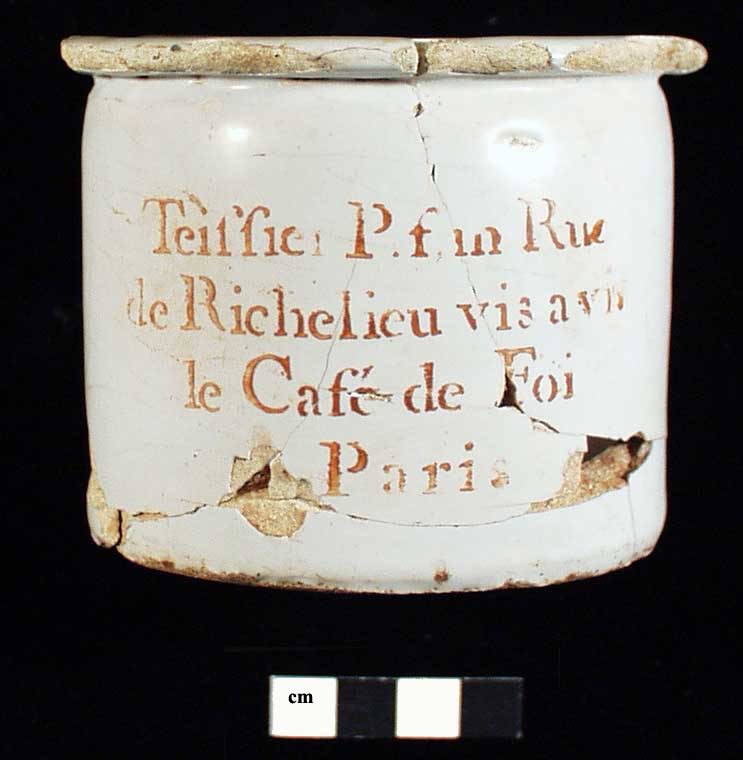 Teiſſier P.f.ur Rue
de Richelieu vis a vis
le Café de Foi
Paris
cm